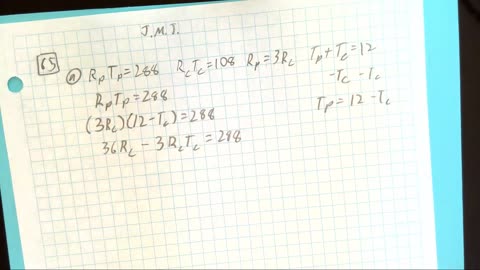 J.M.J.
65
a R_p T_p = 288 R_c T_c = 108 R_p = 3R_c T_p + T_c = 12
-T_c -T_c
R_p T_p = 288 T_p = 12 - T_c
(3R_c)(12 - T_c) = 288
36R_c - 3R_c T_c = 288